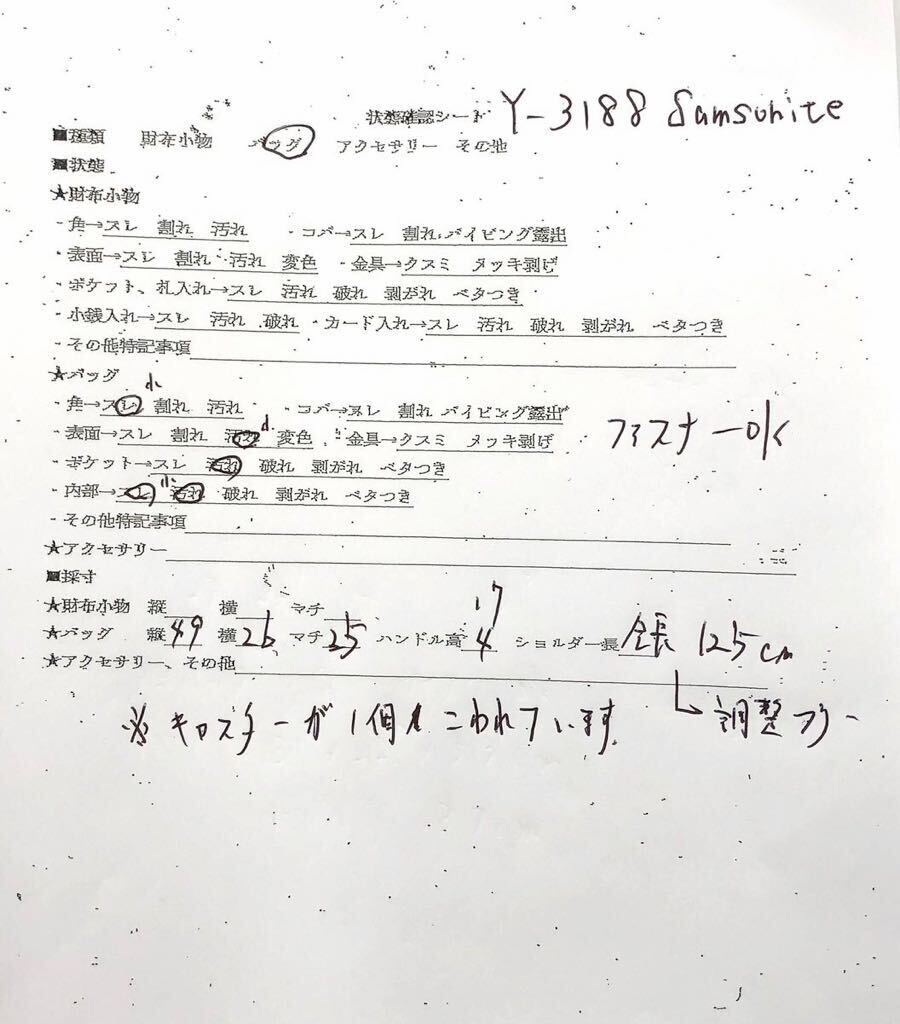 状態確認シート Y-3188 Samsonite
■種類 財布小物 バッグ アクセサリー その他
■状態
★財布小物
・角→スレ 割れ 汚れ ・コバ→スレ 割れ パイピング露出
・表面→スレ 割れ 汚れ 変色 ・金具→クスミ メッキ剥げ
・ポケット、札入れ→スレ 汚れ 破れ 剥がれ ベタつき
・小銭入れ→スレ 汚れ 破れ ・カード入れ→スレ 汚れ 破れ 剥がれ ベタつき
・その他特記事項
★バッグ
小
・角→スレ 割れ 汚れ ・コバ→スレ 割れ パイピング露出
・表面→スレ 割れ 汚れ 変色 ・金具→クスミ メッキ剥げ ファスナーOK
・ポケット→スレ 汚れ 破れ 剥がれ ベタつき
・内部→スレ 小 汚れ 破れ 剥がれ ベタつき
・その他特記事項
★アクセサリー
■採寸
★財布小物 縦 横 マチ
17
★バッグ 縦49 横26 マチ25 ハンドル高4 ショルダー長 全長 125cm
★アクセサリー、その他
調整フリー
※ キャスターが1個 こわれています